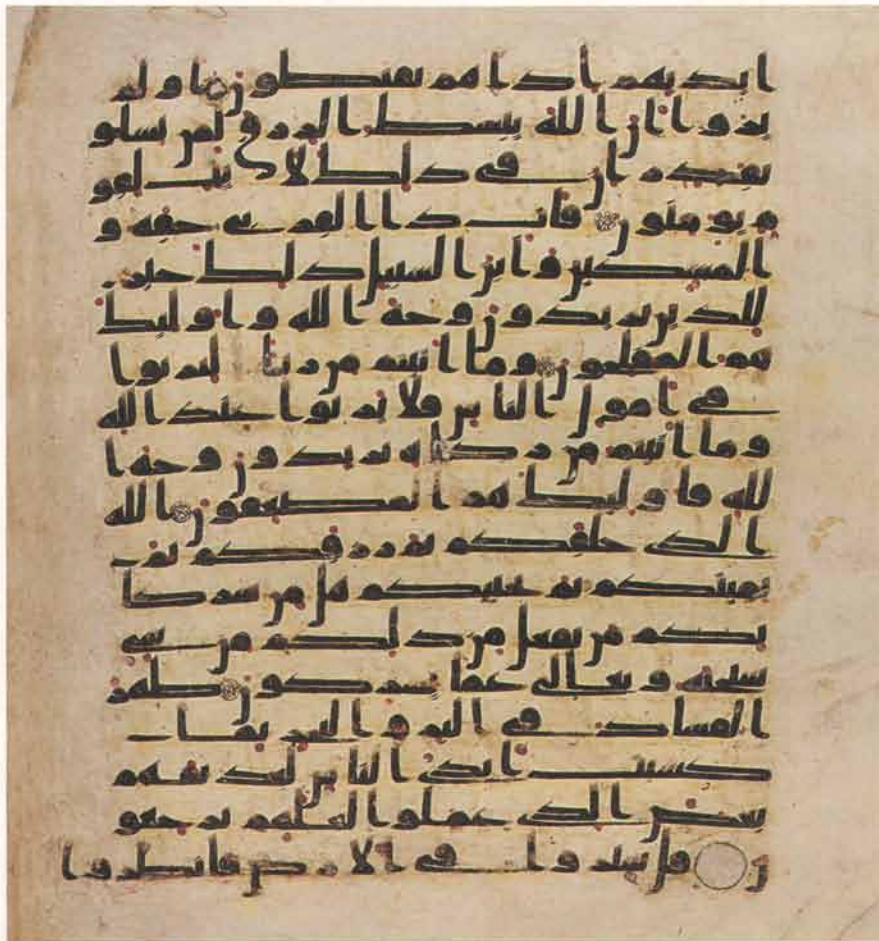 ايديهم اذا هم يقنطون او لم
يروا ان الله يبسط الرزق لمن يشا و
يقدر ان في ذلك لايت لقو
م يومنون فات ذا القربى حقه و
المسكين وابن السبيل ذلك خير
للذين يريدون وجه الله واوليك
هم المفلحون وما اتيتم من ربا ليربوا
في امول الناس فلا يربوا عند الله
وما اتيتم من زكوه تريدون وجه ا
لله فاوليك هم المضعفون الله
الذي خلقكم ثم رزقكم ثم
يميتكم ثم يحييكم هل من شركا
يكم من يفعل من ذلكم من شي
سبحنه وتعلى عما يشركون ظهر
الفساد في البر والبحر بما
كسبت ايدي الناس ليذيقهم
بعض الذي عملوا لعلهم يرجعو
ن قل سيروا في الارض فانظروا